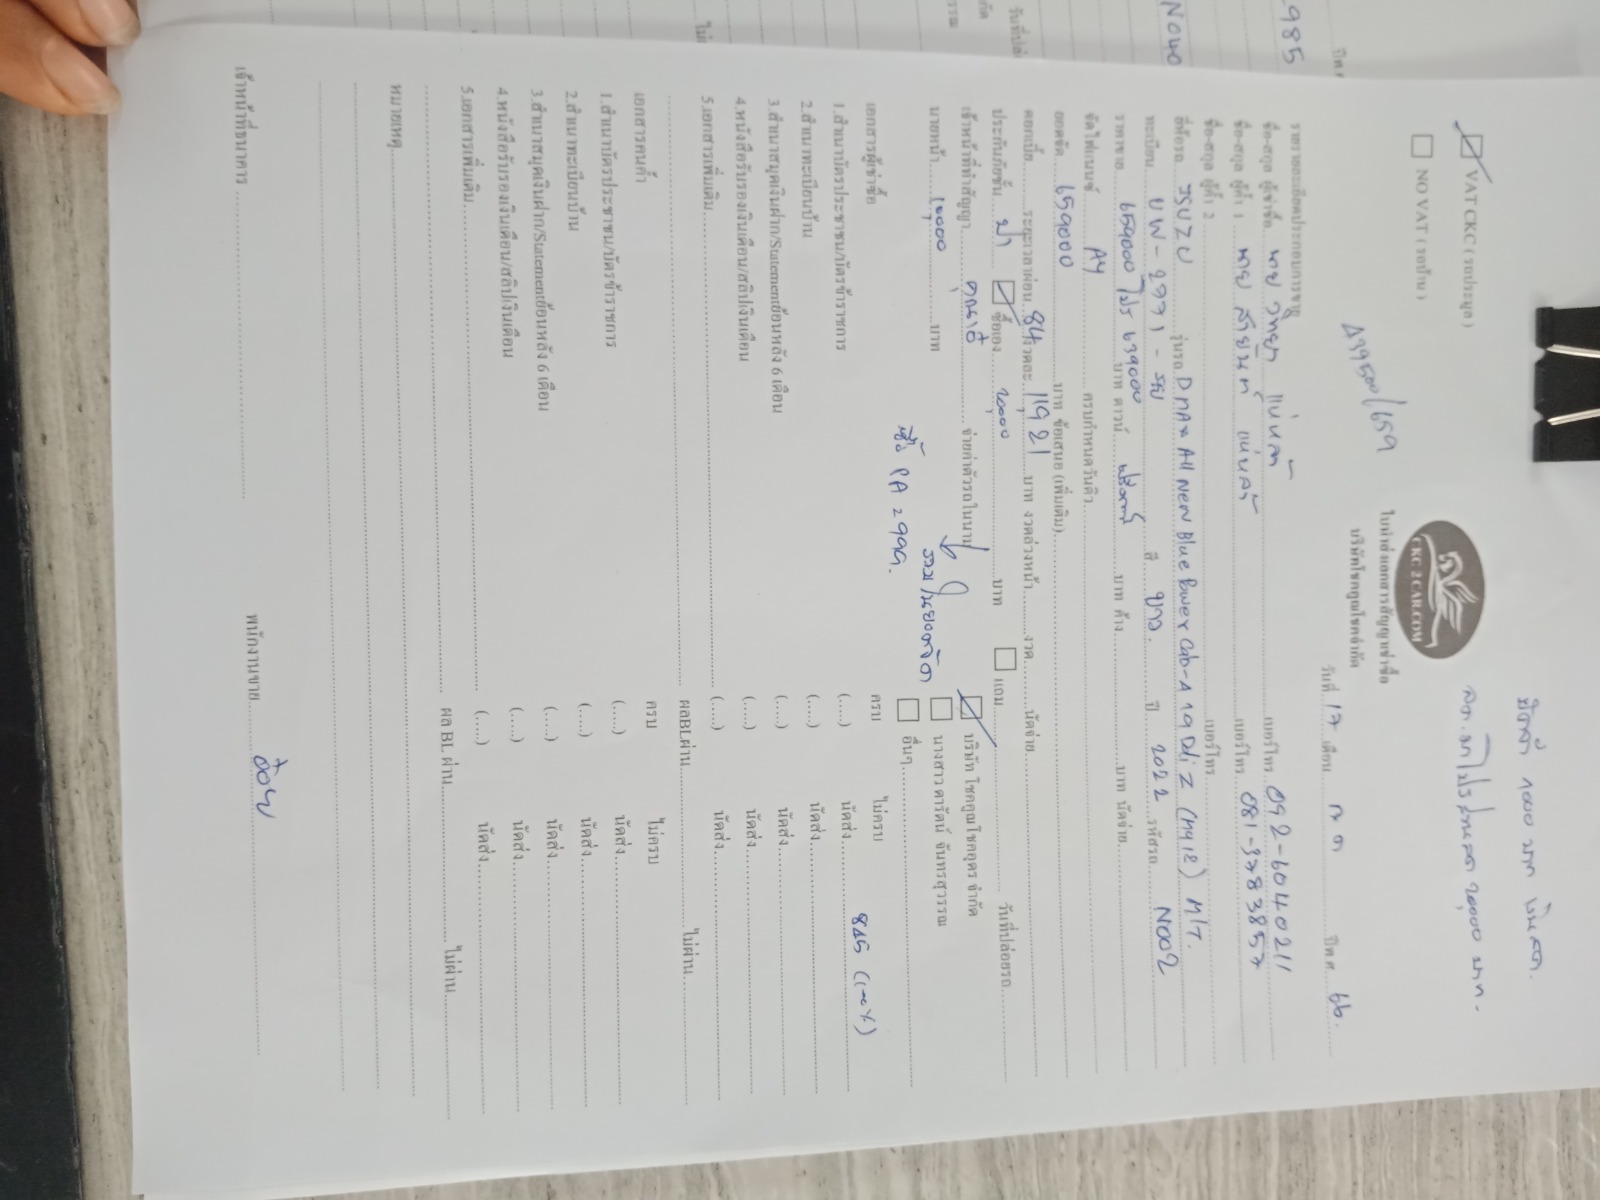 มัดจำ 1000 บาท เงินสด.
20,000 บาท -
CKC 2 CAR.COM
ใบนำส่งเอกสารสัญญาเช่าซื้อ
บริษัทโชคคูณโชคจำกัด
☑ VAT CKC ( รถประมูล )
☐ NO VAT ( รถบ้าน )
439500/659
วันที่ 17 เดือน ก ค ปีพ.ศ. 66.
รายรายละเอียดประกอบการขาย
ชื่อ-สกุล ผู้เช่าซื้อ นาย วิทยา เบอร์โทร 092-6040211
ชื่อ-สกุล ผู้ค้ำ 1 นาย สายยนต์ เบอร์โทร 081-3783857
ชื่อ-สกุล ผู้ค้ำ 2 เบอร์โทร
ยี่ห้อรถ ISUZU รุ่นรถ D max All new Blue Power Cab-4 1.9 Ddi Z (my18) M/T.
ทะเบียน บพ - 2971 - รย สี ขาว. ปี 2022 รหัสรถ N002
ราคาขาย 659000 โปร 639000 บาท ดาวน์ ฟรีดาวน์ บาท ค้าง บาท นัดจ่าย
จัดไฟแนนซ์ AY ครบกำหนดวันคิว
ยอดจัด 659000 บาท ข้อเสนอ (เพิ่มเติม)
ดอกเบี้ย ระยะเวลาผ่อน 84 งวดละ 11,921 บาท งวดล่วงหน้า งวด นัดจ่าย
ประกันภัยชั้น ป1 ☑ ซื้อเอง 20,000 บาท ☐ แถม วันที่ปล่อยรถ
เจ้าหน้าที่ทำสัญญา จ่ายค่าตัวรถในนาม ☑ บริษัท โชคคูณโชคอุดร จำกัด
นายหน้า 10,000 บาท ☐ นางสาว ดารัตน์ จันทรสุวรรณ
รวมในยอดจัด ☐ อื่นๆ
ซื้อ PA 2999.
เอกสารผู้เช่าซื้อ ครบ ไม่ครบ
1.สำเนาบัตรประชาชน/บัตรข้าราชการ (....) นัดส่ง 845 (
2.สำเนาทะเบียนบ้าน (....) นัดส่ง
3.สำเนาสมุดเงินฝาก/Statementย้อนหลัง 6 เดือน (....) นัดส่ง
4.หนังสือรับรองเงินเดือน/สลิปเงินเดือน (....) นัดส่ง
5.เอกสารเพิ่มเติม (....) นัดส่ง
ผลBLผ่าน ไม่ผ่าน
เอกสารคนค้ำ ครบ ไม่ครบ
1.สำเนาบัตรประชาชน/บัตรข้าราชการ (....) นัดส่ง
2.สำเนาทะเบียนบ้าน (....) นัดส่ง
3.สำเนาสมุดเงินฝาก/Statementย้อนหลัง 6 เดือน (....) นัดส่ง
4.หนังสือรับรองเงินเดือน/สลิปเงินเดือน (....) นัดส่ง
5.เอกสารเพิ่มเติม (....) นัดส่ง
ผล BL ผ่าน ไม่ผ่าน
หมายเหตุ
เจ้าหน้าที่ธนาคาร พนักงานขาย